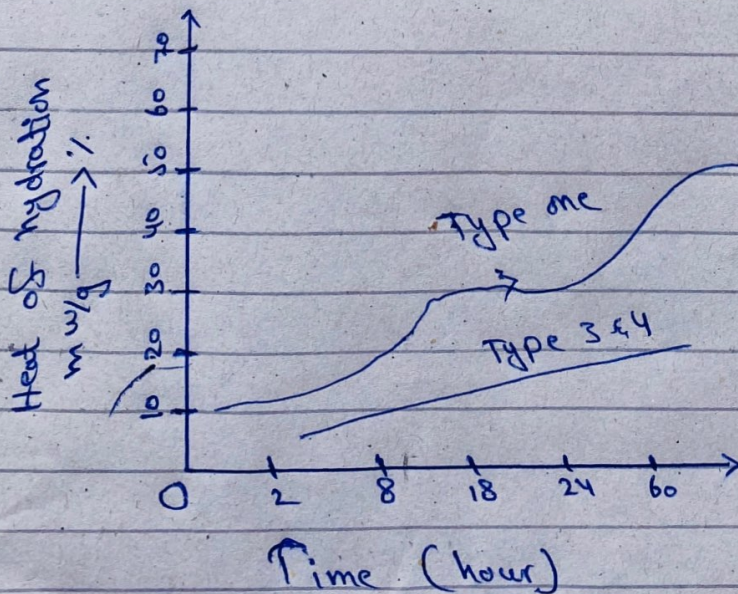 Heat of hydration
m w/g → %
70
60
50
40
30
20
10
Type one
Type 3 & 4
0 2 8 18 24 60
Time (hour)